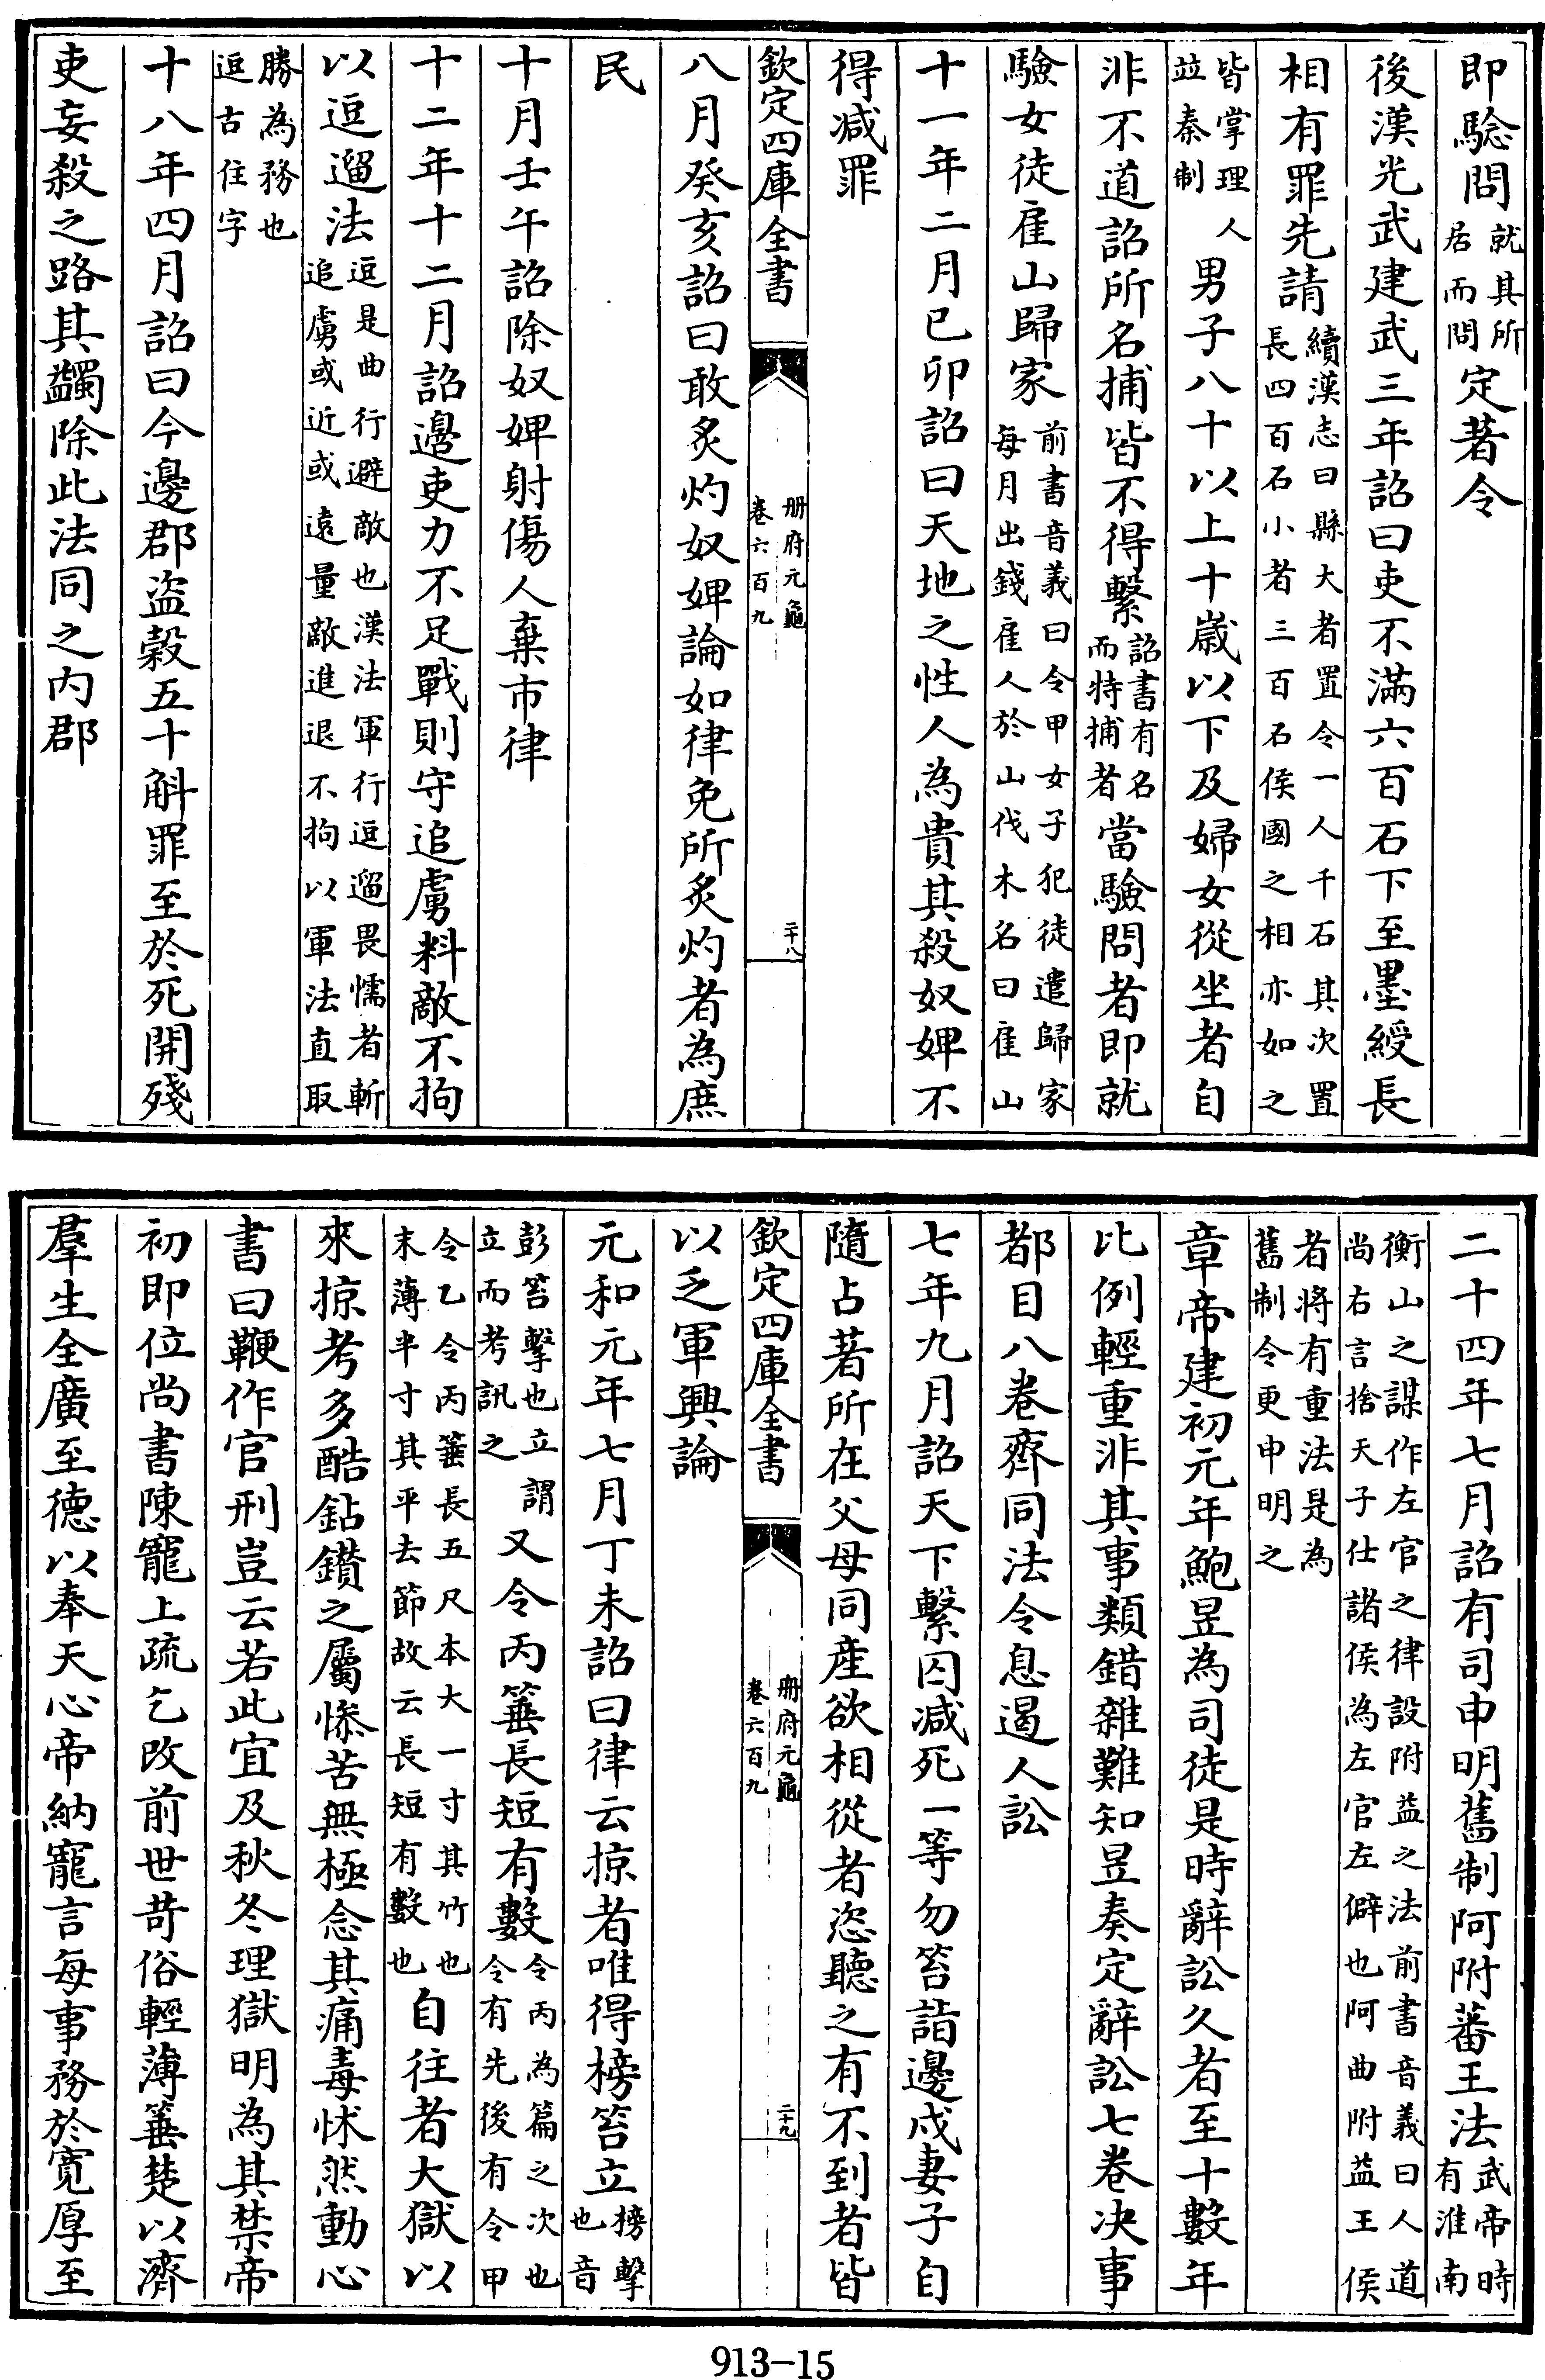 即驗問就其所居而問定著令
後漢光武建武三年詔曰吏不滿六百石下至墨綬長
相有罪先請續漢志曰縣大者置令一人千石其次置長四百石小者三百石侯國之相亦如之
皆掌理人竝秦制男子八十以上十歲以下及婦女從坐者自
非不道詔所名捕皆不得繫詔書有名而特捕者當驗問者即就
驗女徒雇山歸家前書音義曰令甲女子犯徒遣歸家每月出錢雇人於山伐木名曰雇山
十一年二月已卯詔曰天地之性人為貴其殺奴婢不
得減罪
欽定四庫全書
册府元龜
卷六百九
二十八
八月癸亥詔曰敢炙灼奴婢論如律免所炙灼者為庶
民
十月壬午詔除奴婢射傷人棄市律
十二年十二月詔邊吏力不足戰則守追虜料敵不拘
以逗遛法逗是曲行避敵也漢法軍行逗遛畏懦者斬追虜或近或遠量敵進退不拘以軍法直取
勝為務也逗古住字
十八年四月詔曰今邊郡盜穀五十斛罪至於死開殘
吏妄殺之路其蠲除此法同之内郡
二十四年七月詔有司申明舊制阿附蕃王法武帝時有淮南
衡山之謀作左官之律設附益之法前書音義曰人道尚右言捨天子仕諸侯為左官左僻也阿曲附益王侯
者將有重法是為舊制令更申明之
章帝建初元年鮑昱為司徒是時辭訟久者至十數年
比例輕重非其事類錯雜難知昱奏定辭訟七卷決事
都目八卷齊同法令息遏人訟
七年九月詔天下繫囚減死一等勿笞詣邊戍妻子自
隨占著所在父母同產欲相從者恣聽之有不到者皆
欽定四庫全書
册府元龜
卷六百九
二十九
以乏軍興論
元和元年七月丁未詔曰律云掠者唯得榜笞立榜擊也音
彭笞擊也立謂立而考訊之又令丙箠長短有數令丙為篇之次也令有先後有令甲
令乙令丙箠長五尺本大一寸其竹也末薄半寸其平去節故云長短有數也自往者大獄以
來掠考多酷鉆鑽之屬慘苦無極念其痛毒怵然動心
書曰鞭作官刑豈云若此宜及秋冬理獄明為其禁帝
初即位尚書陳寵上疏乞改前世苛俗輕薄箠楚以濟
羣生全廣至德以奉天心帝納寵言每事務於寬厚至
913–15